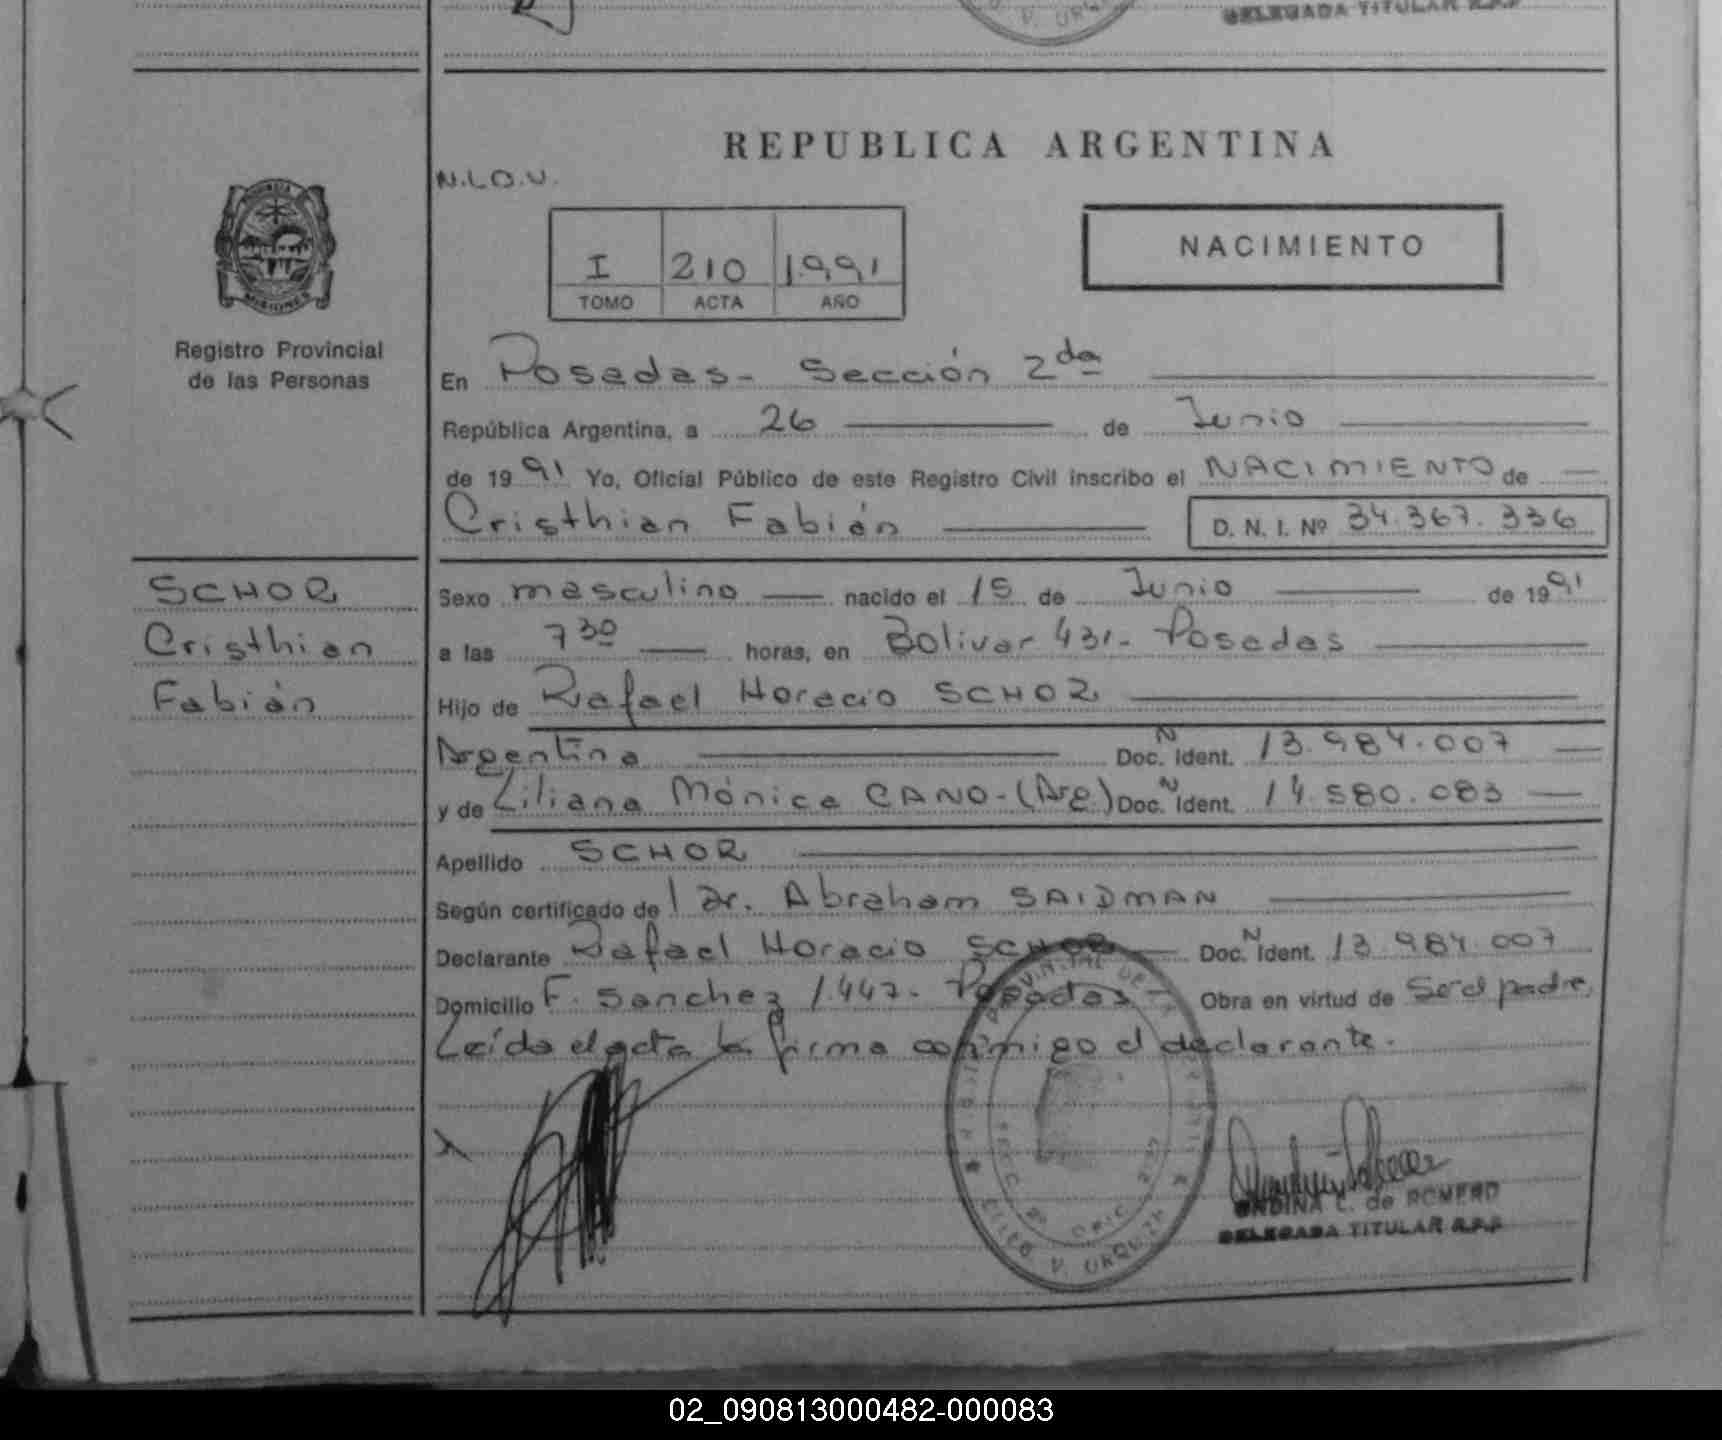 DELEGADA TITULAR R.P.P
REPUBLICA ARGENTINA
N.L.O.V.
NACIMIENTO
I 210 1991
TOMO ACTA AÑO
Registro Provincial
de las Personas
En Posadas - Sección 2da
República Argentina, a 26 de Junio
de 1991 Yo, Oficial Público de este Registro Civil inscribo el NACIMIENTO de
Cristhian Fabián D. N. I. Nº 34.367.336
SCHOR
Cristhian
Fabián
Sexo masculino nacido el 15 de Junio de 1991
a las 7 30 horas, en Bolivar 431 - Posadas
Hijo de Rafael Horacio SCHOR
Argentina Doc. N Ident. 13.984.007
y de Liliana Mónica CANO - (Arg.) Doc. N Ident. 14.580.083
Apellido SCHOR
Según certificado del Dr. Abraham SAIDMAN
Declarante Rafael Horacio SCHOR Doc. N Ident. 13.984.007
Domicilio F. Sanchez 1.447 - Posadas Obra en virtud de Ser el padre,
Leída el acta la firma conmigo el declarante.
X
ONDINA C. de ROMERO
DELEGADA TITULAR R.P.P
02_090813000482-000083